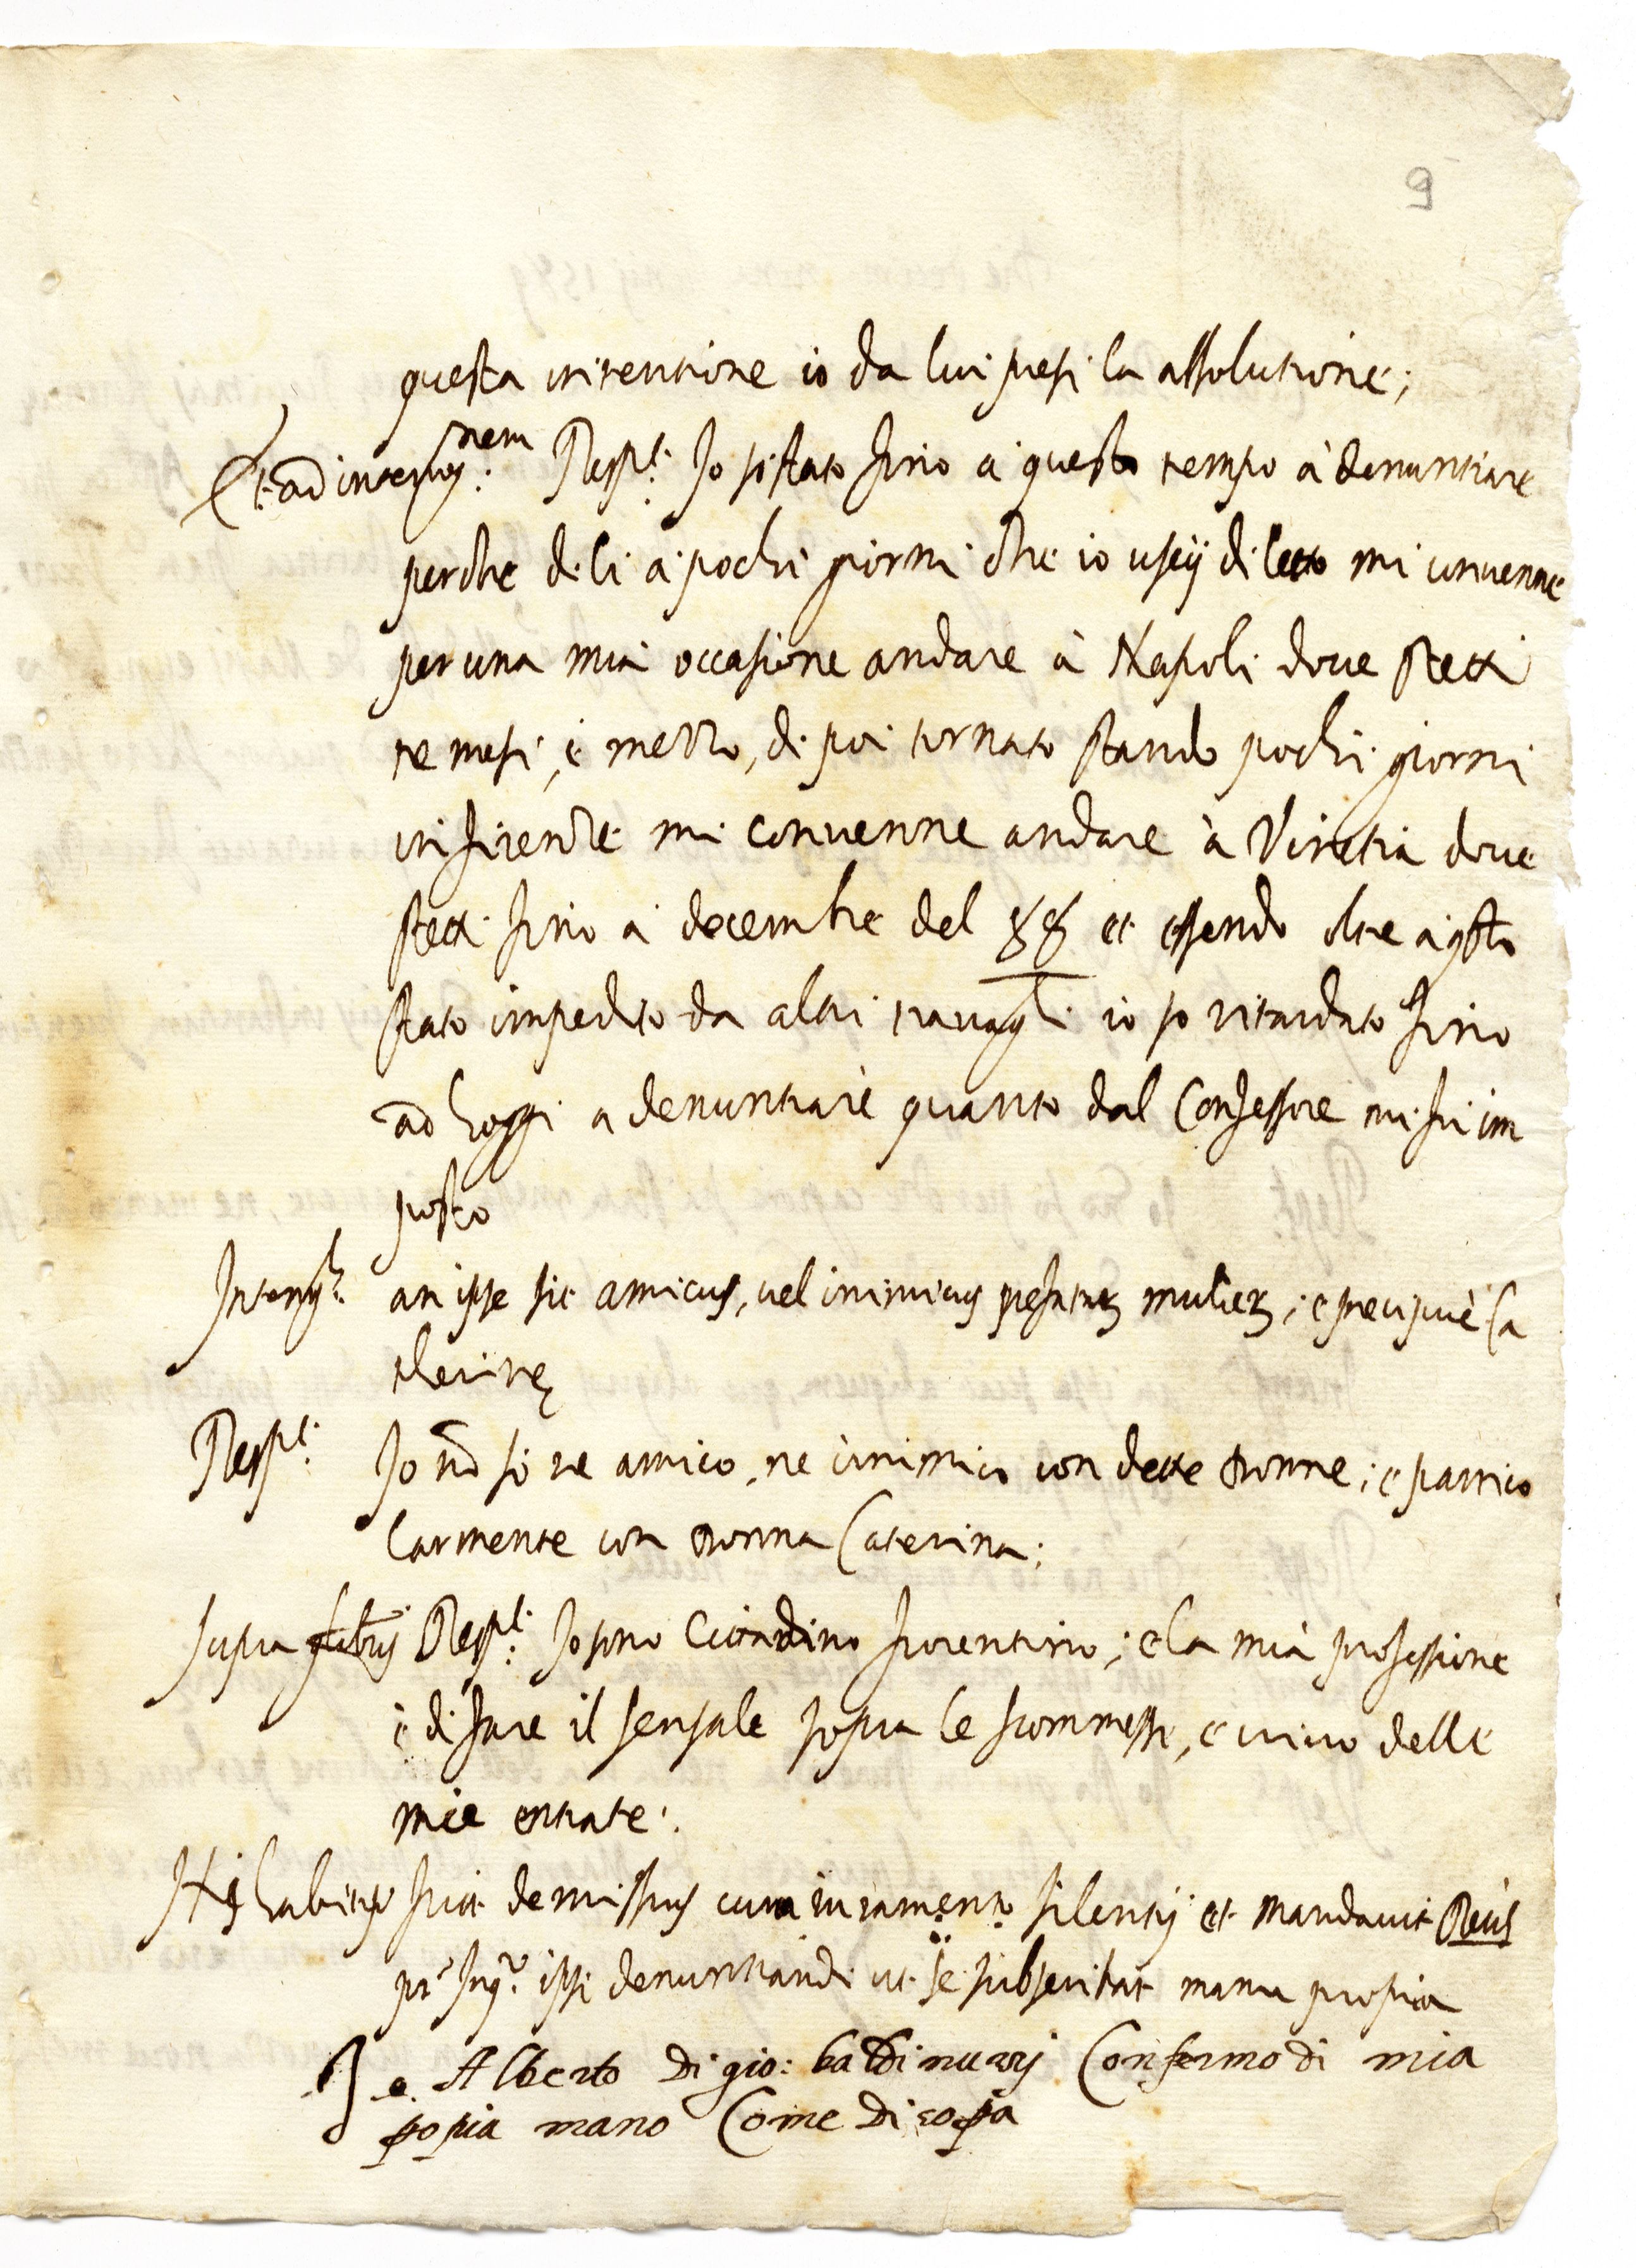 9
questa intentione io da lui presi la assolutione;
Et ad interrog.nem Resp.t Io so stato fino a questo tempo à denuntiare
perche di li a pochi giorni che io uscij di letto mi conuenne
per una mia occasione andare à Napoli doue stetti
tre mesi, e mezzo, di poi tornato stando pochi giorni
in firenze mi conuenne andare à Vinetia doue
stetti fino a decembre del 88 et essendo oltre a q̃sto
stato impedito da altri trauagli io so ritardato fino
ad hoggi a denuntiare quanto dal Confessore mi fu im
posto
Interr.s an ipse sit amicus, uel inimicus prefatarũ mulierũ; e precipuè Ca
therinę
Resp.t Io nõ so ne amico, ne inimico con dette donne; e partico
larmente con donna Caterina;
supra Resp.t Io sono Cittadino fiorentino; e la mia professione
è di fare il sensale sopra le scommesse, e uiuo delle
mie entrate.
His habitis fuit demissus cum iuramento silentij et mandauit Reu.s
pr. Inq.r ipsi denuntianti ut se subscribat manu propria
Io Alberto di gio: baldinucij Confermo di mia
propia mano Come di sopra